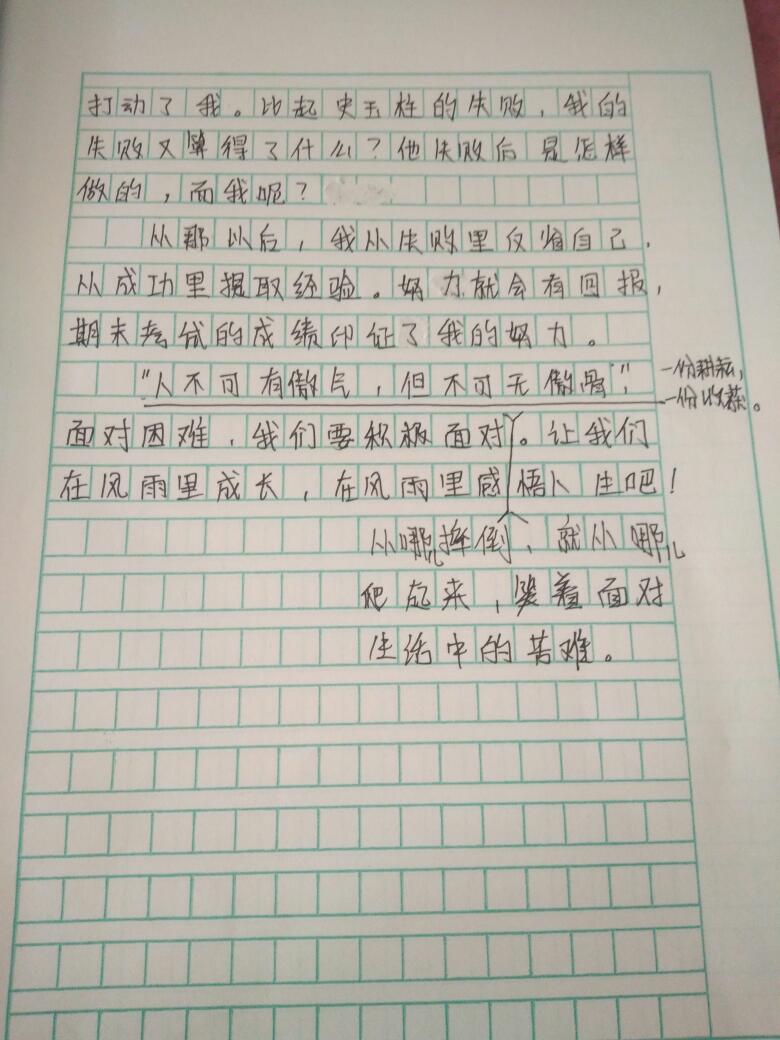 打动了我。比起史玉柱的失败，我的
失败又算得了什么？他失败后是怎样
做的，而我呢？
从那以后，我从失败里反省自己，
从成功里提取经验。努力就会有回报，
期末考试的成绩印证了我的努力。
"人不可有傲气，但不可无傲骨"，
一份耕耘，
一份收获。
面对困难，我们要积极面对。让我们
在风雨里成长，在风雨里感悟人生吧！
从哪儿摔倒，就从哪儿
爬起来，笑着面对
生活中的苦难。